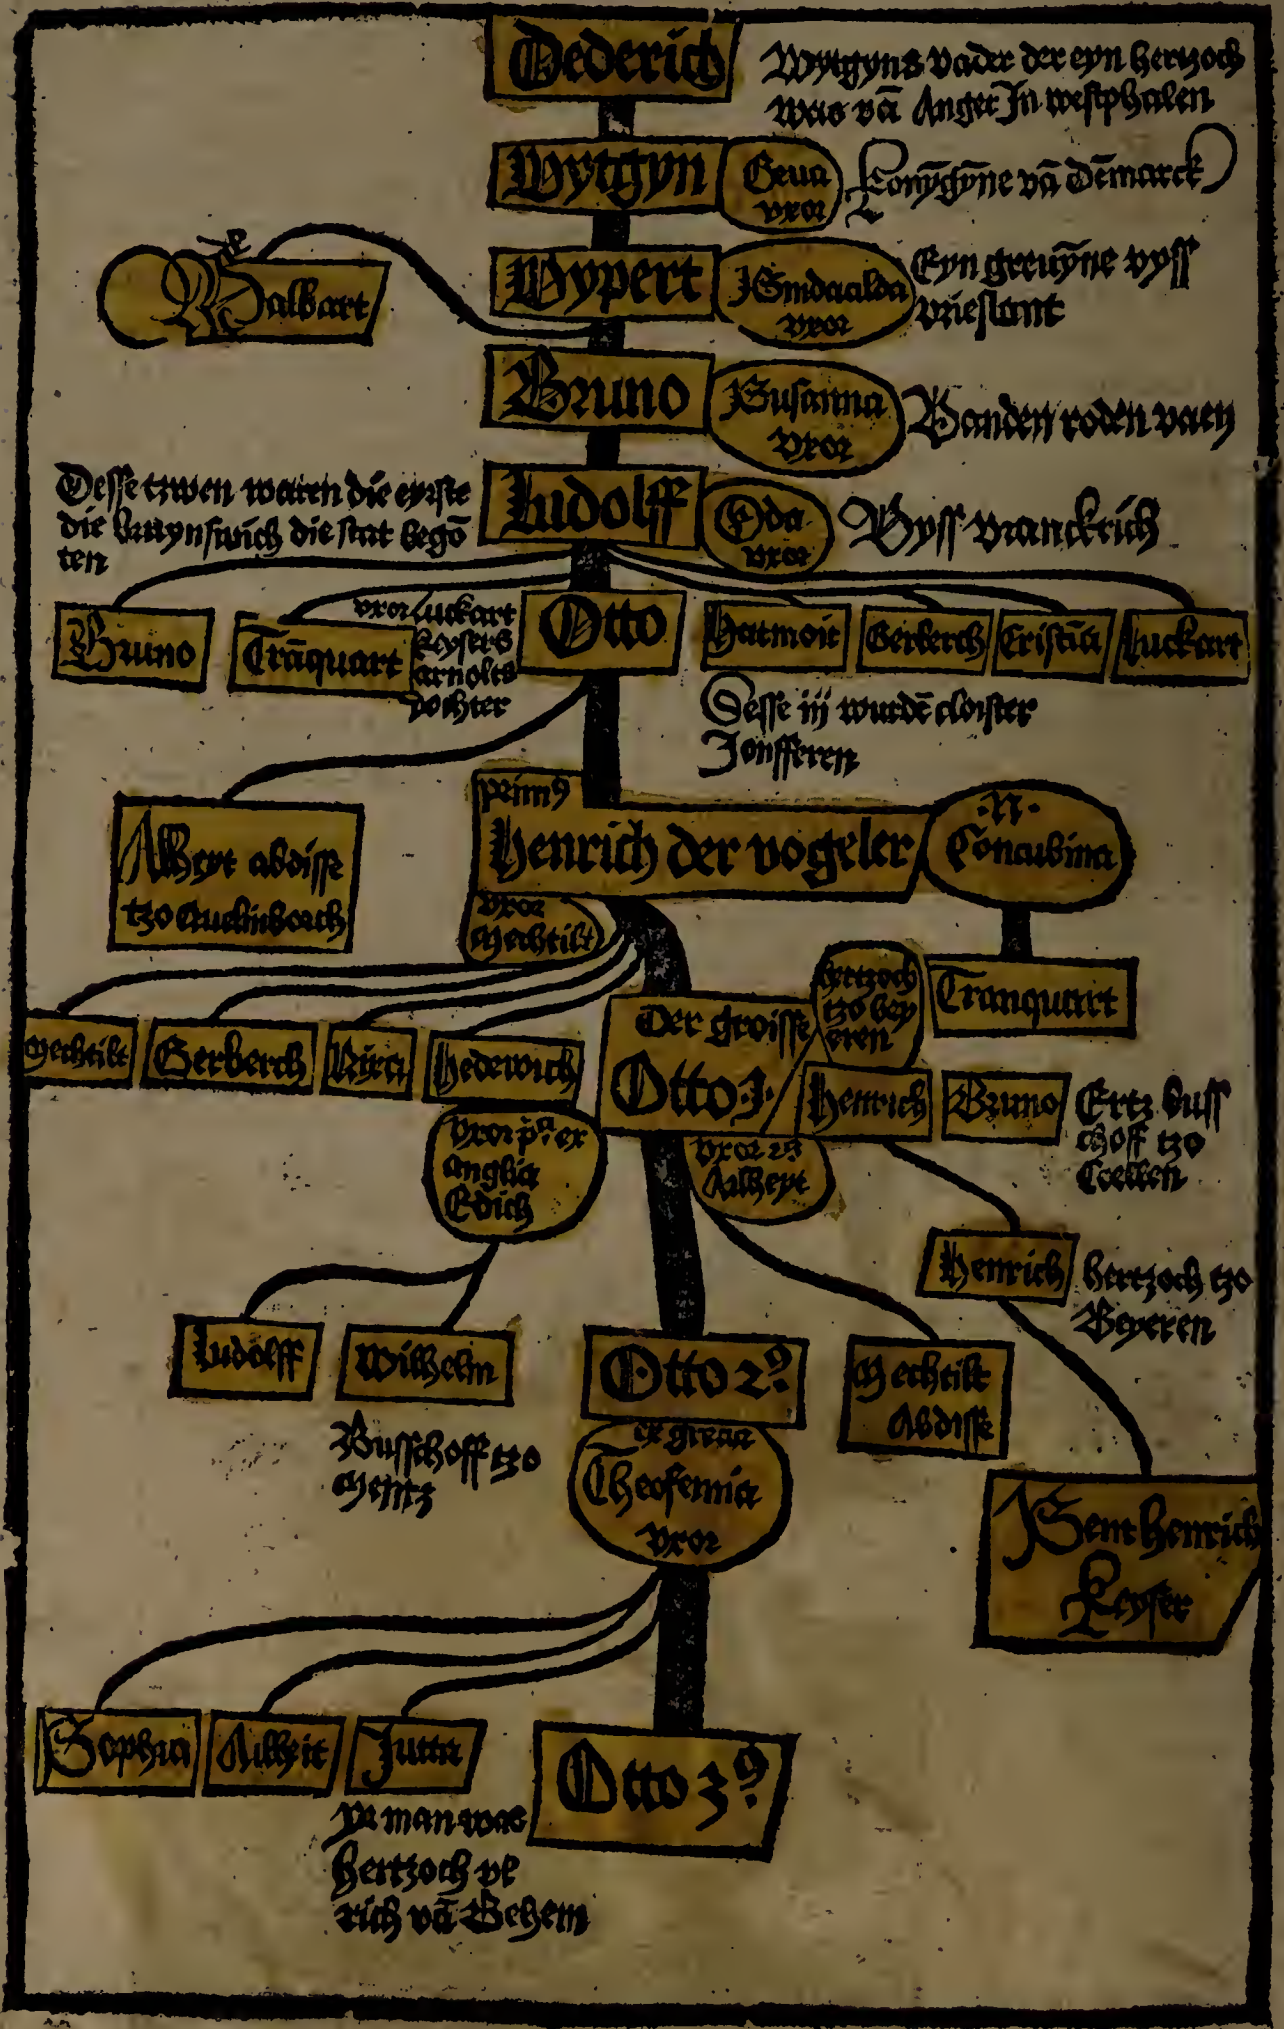 Dederich
Wytgyns vader der eyn hertzoch
was vā Anger Jn westphalen
Wytgyn
Geua
vxor
konȳgȳne vā Dēmarck
Walbart
Wypert
Gundacilda
vxor
Eyn greuȳne vyss
vrieslant
Bruno
Susanna
vxor
Vanden roden vaen
Desse tzwen waren die eyrste
die bruynswich die stat begō
ten
Ludolff
Oda
vxor
Vyss vranckrich
Bruno
Trāquart
vxor Luckart
keysers
arnolts
dochter
Otto
Hatmoit
Gerberch
Cristīa
Luckart
Desse iij wurdē cloister
Jonfferen
Alheyt abdisse
tzo Quedlinborch
primꝰ
Henrich der vogeler
.N.
Concubina
vxor
Mechtilt
Tranquart
Mechtilt
Gerberch
Hedewich
Der groisse
Otto .j.
hertzoch
tzo bey
eren
Henrich
Bruno
Ertz buss
choff tzo
Coellen
vxor pª. ex
anglia
Edich
vxor 2ª
Ailheyt
Henrich
hertzoch tzo
Beyeren
Ludolff
Wilhelm
Busschoff tzo
Mentz
Otto 2ꝰ.
Mechtilt
Abdisse
ex grecia
Theofemia
vxor
Sent Henrich
Keyser
Sophia
Ailheit
Jutta
Otto 3ꝰ.
yr man was
hertzoch vl
rich vā Behem